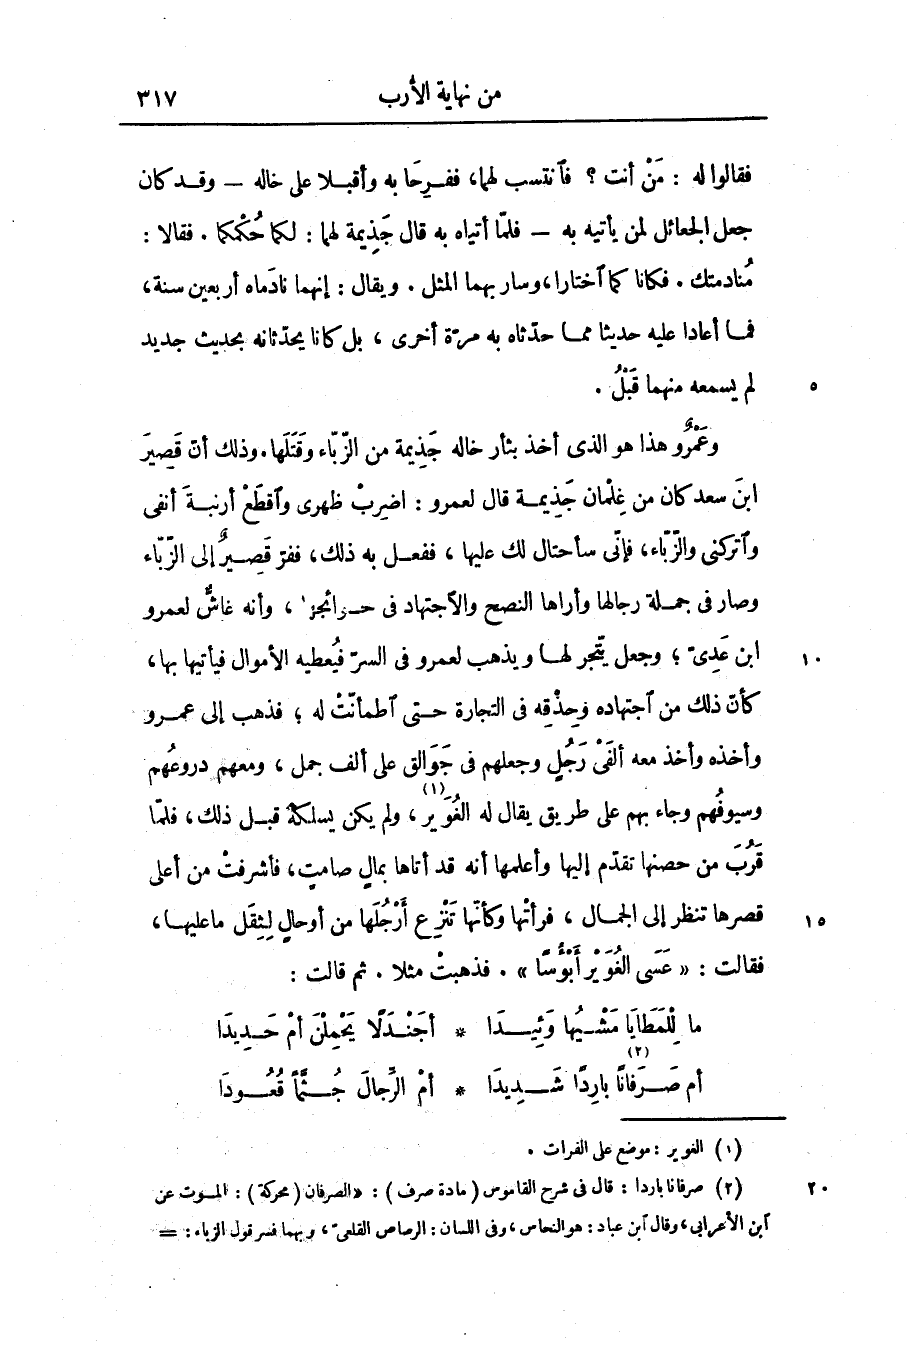 من نهاية الأرب ٣١٧
فقالوا له : مَنْ أنت ؟ فآنتسب لهما، ففـرِحَا به وأقبلا على خاله — وقد كان
جعل الجعائل لمن يأتيه به — فلمّا أتياه به قال جَذِيمة لهما : لكما حُكْمكما . فقالا :
مُنادمتك . فكانا كما آختارا، وسار بهما المثل . ويقال : إنهما نادَماه أربعين سنة،
فما أعادا عليه حديثا مما حدّثاه به مرّة أخرى ، بل كانا يحدّثانه بحديث جديد
لم يسمعه منهما قَبْلُ . ٥
وعَمْرٌو هذا هو الذى أخذ بثأر خاله جَذِيمة من الزّبّاء وقَتَلَها. وذلك أنّ قَصِيرَ
ابنَ سعد كان من غِلْمان جَذِيمة قال لعمرو : اضرِبْ ظهرى وآقطَعْ أرنبةَ أنفى
وآتركنى والزّبّاء، فإنّى سأحتال لك عليها ، ففعل به ذلك، ففرّ قَصِيرٌ إلى الزّبّاء
وصار فى جملة رجالها وأراها النصح والآجتهاد فى حوائجها ، وأنه غاشٌّ لعمرو
ابن عَدِىّ ؛ وجعل يتّجر لها ويذهب لعمرو فى السرّ فيُعطيه الأموال فيأتيها بها، ١٠
كأنّ ذلك من آجتهاده وحِذْقِه فى التجارة حتى آطمأنّتْ له ؛ فذهب إلى عمرو
وأخذه وأخذ معه ألفَىْ رَجُلٍ وجعلهم فى جَوَالق على ألف جمل ، ومعهم دروعُهم
وسيوفُهم وجاء بهم على طريق يقال له الغُوَير (١)، ولم يكن يسلكهُ قبل ذلك، فلمّا
قَرُبَ من حصنها تقدّم إليها وأعلمها أنه قد أتاها بمالٍ صامتٍ، فأشرفتْ من أعلى
قصرها تنظر إلى الجمال ، فرأتْها وكأنّها تَنْزِع أَرْجُلَها من أوحالٍ لِثِقَل ماعليها، ١٥
فقالت : « عَسَى الغُوَيْر أَبْؤُسًا » . فذهبتْ مثلا . ثم قالت :
ما لِلْمَطَايَا مَشْيُها وَئِيدَا * أجَنْدَلًا يَحْمِلْنَ أمْ حَدِيدَا
أم صَرَفانًا (٢) بارِدًا شَدِيدَا * أمْ الرِّجالَ جُثَّمًا قُعُودَا
(١) الغوير : موضع على الفرات .
(٢) صرفانا باردا : قال فى شرح القاموس (مادة صرف) : «الصرفان (محركة) : الموت عن ٢٠
آبن الأعرابى، وقال آبن عباد : هو النحاس، وفى اللسان : الرصاص القلعىّ، وبهما فسر قول الزباء : =